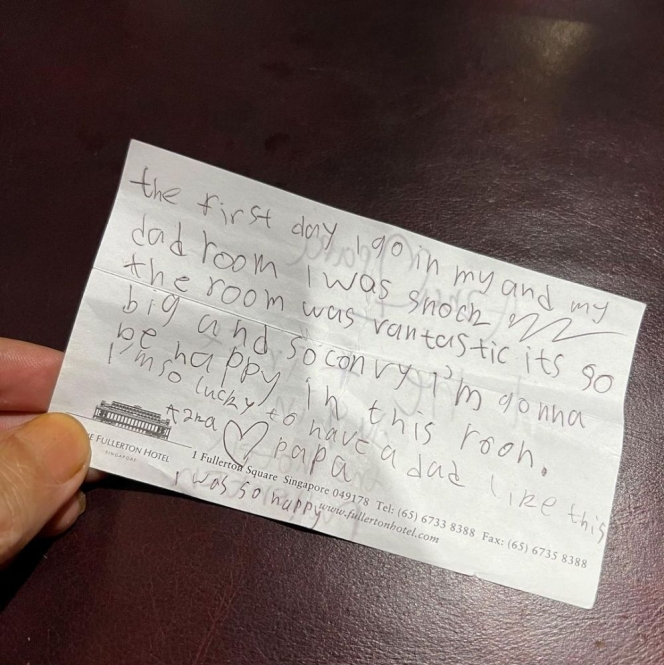 the first day I go in my and my
dad room I was shock
the room was rantastic its so
big and so convy I'm gonna
be happy in this rooh.
I'm so lucky to have a dad like this
♡ papa
THE FULLERTON HOTEL
SINGAPORE
1 Fullerton Square Singapore 049178 Tel: (65) 6733 8388 Fax: (65) 6735 8388
www.fullertonhotel.com
I was so happy